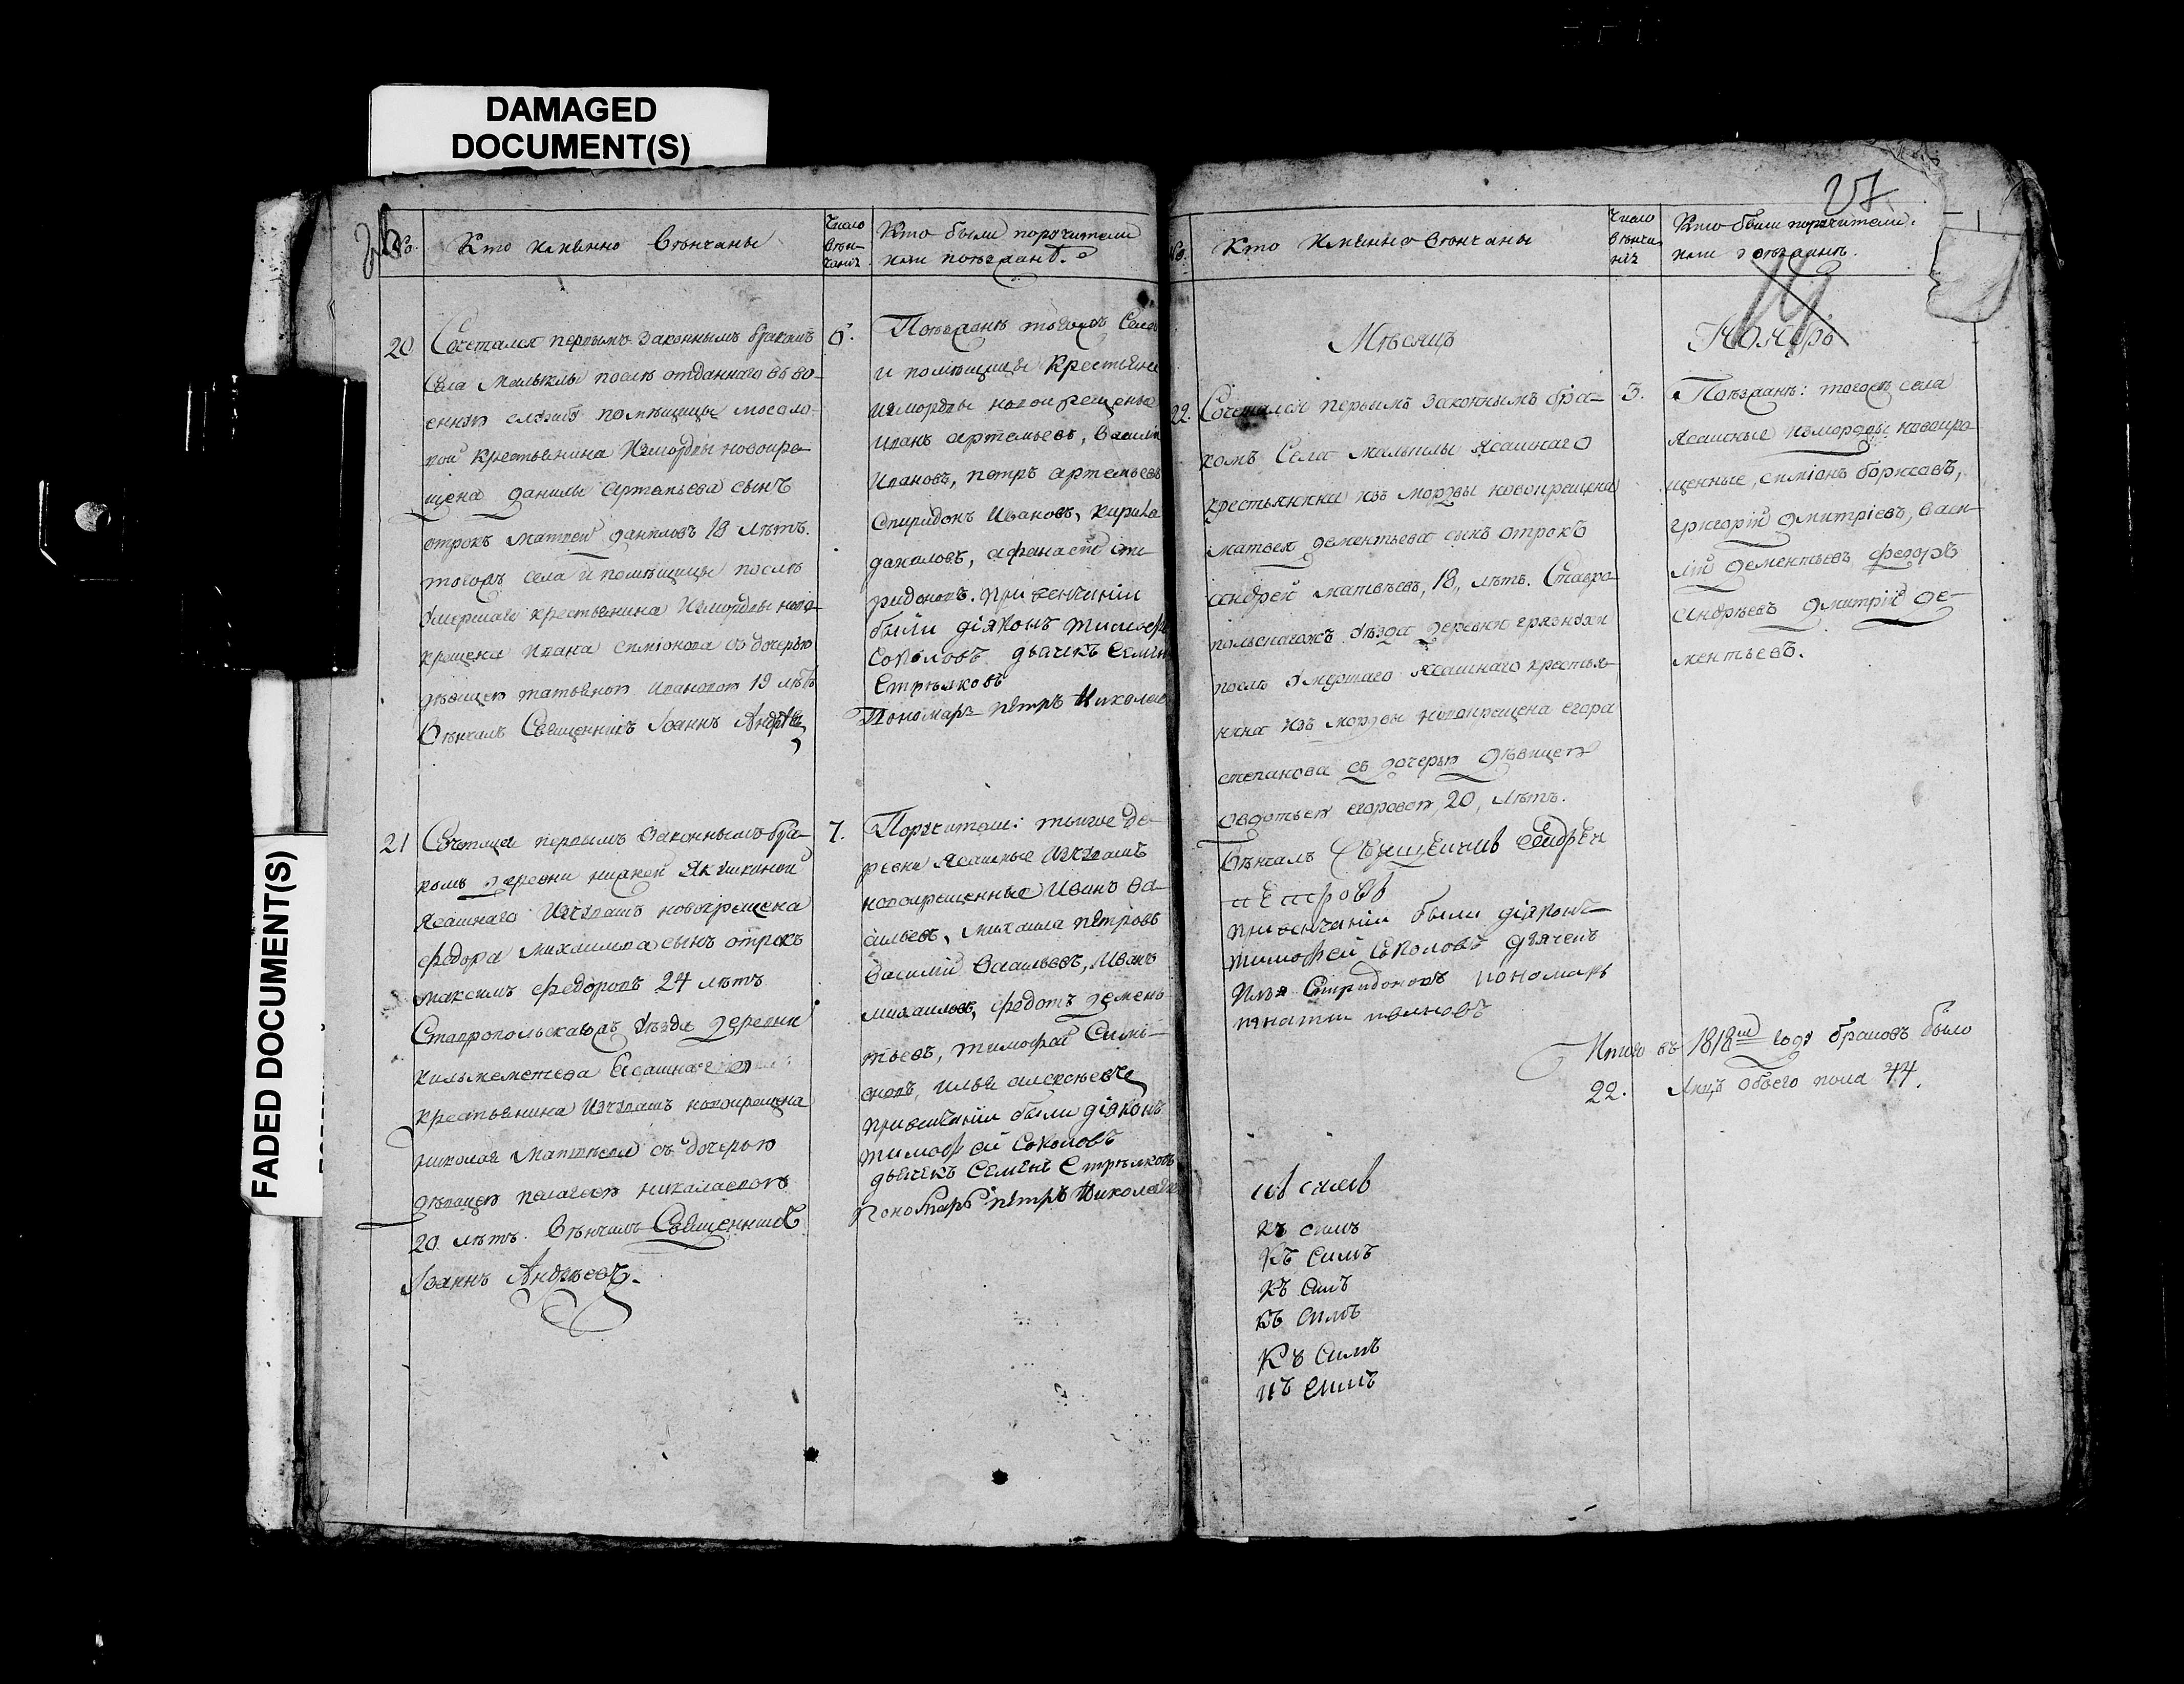 DAMAGED
DOCUMENT(S)
FADED DOCUMENT(S)
26
No.
Кто имянно венчаны
Число
вѣн-
чанiя
Кто были поручители
или поѣзданѣ.
20
Сочетался первымъ законнымъ бракомъ
Села Малыклы послѣ отданнаго въ во-
енную службу помѣщицы
крестьянина измордвы новокре-
щена данилы Артемьева сынъ
отрокъ матвей даниловъ 18 лѣтъ.
тогожъ села и помѣщицы послѣ
умершаго крестьянина измордвы ново-
крещена ивана симiонова съ дочерью
дѣвицею татьяною ивановою 19 лѣтъ
Вѣнчалъ Священникъ Iоаннъ Андрѣевъ
6.
Поѣзданѣ тогожъ Села
и помѣщицы крестьяне
измордвы новокрещеные
иванъ артемьевъ, василiй
ивановъ, петръ артемьевъ
спиридонъ ивановъ, кирила
даниловъ, афанасей спи-
ридоновъ. при венчанiи
были дiяконъ тимофей
Соколовъ дьячекъ Семенъ
Стрѣлковъ
Пономарь петръ Николаевъ
21
Сочетался первымъ законнымъ бра-
комъ деревни нижней Якушкиной
ясашнаго изчувашъ новокрещена
федора михаилова сынъ отрокъ
максимъ федоровъ 24 лѣтъ
Ставропольскагожъ уѣзда деревни
ясашнаго
крестьянина изчувашъ новокрещена
николая Матвѣева съ дочерью
дѣвицею пелагеею николаевою
20 лѣтъ. Вѣнчалъ Священникъ
Iоаннъ Андрѣевъ.
7.
Поручители: тойже де-
ревни ясашные изчувашъ
новокрещенные Иванъ ва-
сильевъ, михаила петровъ
василiй васильевъ, иванъ
михаиловъ, федотъ демен-
тьевъ, тимофей Симi-
оновъ, илья алексѣевъ
при венчанiи были дiяконъ
тимофей Соколовъ
дьячекъ Семенъ Стрѣлковъ
Пономарь петръ Николаевъ
27
No.
Кто имянно вѣнчаны
Число
вѣнча
нiя
Кто были поручители.
или поѣзданѣ.
Мѣсяцъ
Ноябрь
22.
Сочетался первымъ законнымъ бра-
комъ Села малыклы ясашнаго
крестьянина изъ мордвы новокрещена
матвея дементьева сынъ отрокъ
андрей матвѣевъ, 18, лѣтъ. Ставро-
польскагожъ уѣзда деревни грязнухи
послѣ умершаго ясашнаго крестья-
нина изъ мордвы новокрещена егора
степанова съ дочерью дѣвицею
овдотьею егоровою, 20, лѣтъ.
Вѣнчалъ Священникъ Андрей
петровъ
при венчанiи были дiяконъ
тимофей Соколовъ дьячекъ
Илья Спиридоновъ пономарь
3.
Поѣзданѣ: тогожъ села
ясашные измордвы новокре-
щенные, симiонъ борисовъ,
григорiй дмитрiевъ, васи-
лiй дементьевъ федоръ
андрѣевъ дмитрiй де-
ментьевъ.
Итого въ 1818мъ году браковъ было
22. лицъ обоего пола 44.
къ симъ
къ симъ
къ симъ
къ симъ
къ симъ
къ симъ
къ симъ